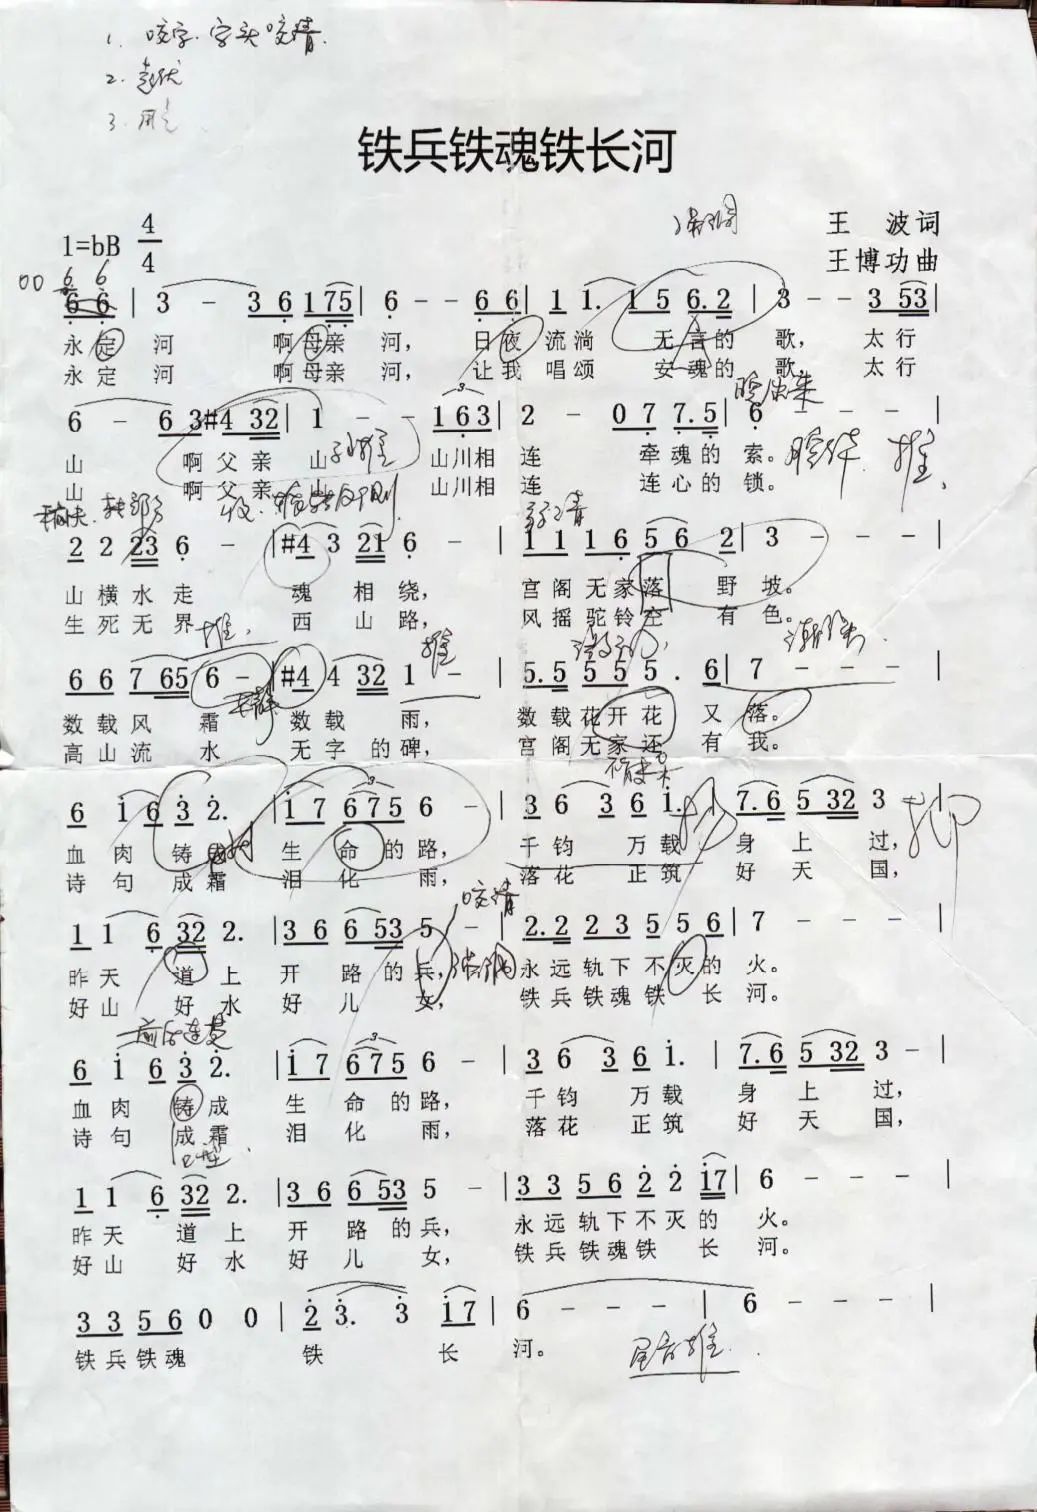 1. 咬字.字头咬清.
2.
3.
铁兵铁魂铁长河
王 波词
1=bB 4/4
王博功曲
00 6 6
6 6 | 3 - 3 6 1 75 | 6 - - 6 6 | 1 1. 1 5 6. 2 | 3 - - 3 53 |
永定 河 啊母亲 河， 日夜 流淌 无言的 歌， 太行
永定 河 啊母亲 河， 让我 唱颂 安魂的 歌， 太行
6 - 6 3 #4 32 | 1 - - 1 6 3 | 2 - 0 7 7. 5 | 6 - - - |
山 啊父亲 山 山川相 连 牵魂的 索。
山 啊父亲 山 山川相 连 连心的 锁。
推
2 2 23 6 - | #4 3 21 6 - | 1 1 1 6 5 6 2 | 3 - - - |
山横水走 魂相绕， 宫阁无家落 野坡。
生死无界 西山路， 风摇驼铃空 有色。
推
推
6 6 7 65 6 - | #4 4 32 1 - | 5. 5 5 5 5 . 6 | 7 - - - |
数载风 霜 数载 雨， 数载花开花 又 落。
高山流 水 无字的碑， 宫阁无家还 有 我。
6 i 6 3 2. | i 7 6 75 6 - | 3 6 3 6 i. | 7. 6 5 32 3 - |
血肉铸成 生命的路， 千钧 万载 身上 过，
诗句成霜 泪化 雨， 落花 正筑 好天 国，
咬清
1 1 6 32 2. | 3 6 6 53 5 - | 2. 2 2 3 5 5 6 | 7 - - - |
昨天 道上 开路的兵， 永远轨下不灭的 火。
好山 好水 好儿 女， 铁兵铁魂铁 长 河。
6 i 6 3 2. | i 7 6 75 6 - | 3 6 3 6 i. | 7. 6 5 32 3 - |
血肉铸成 生命的路， 千钧 万载 身上 过，
诗句成霜 泪化 雨， 落花 正筑 好天 国，
1 1 6 32 2. | 3 6 6 53 5 - | 3 3 5 6 2 2 i7 | 6 - - - |
昨天 道上 开路的兵， 永远轨下不灭的 火。
好山 好水 好儿 女， 铁兵铁魂铁 长 河。
3 3 5 6 0 0 | 2 3. 3 i7 | 6 - - - | 6 - - - |
铁兵铁魂 铁 长 河。
尾音推.